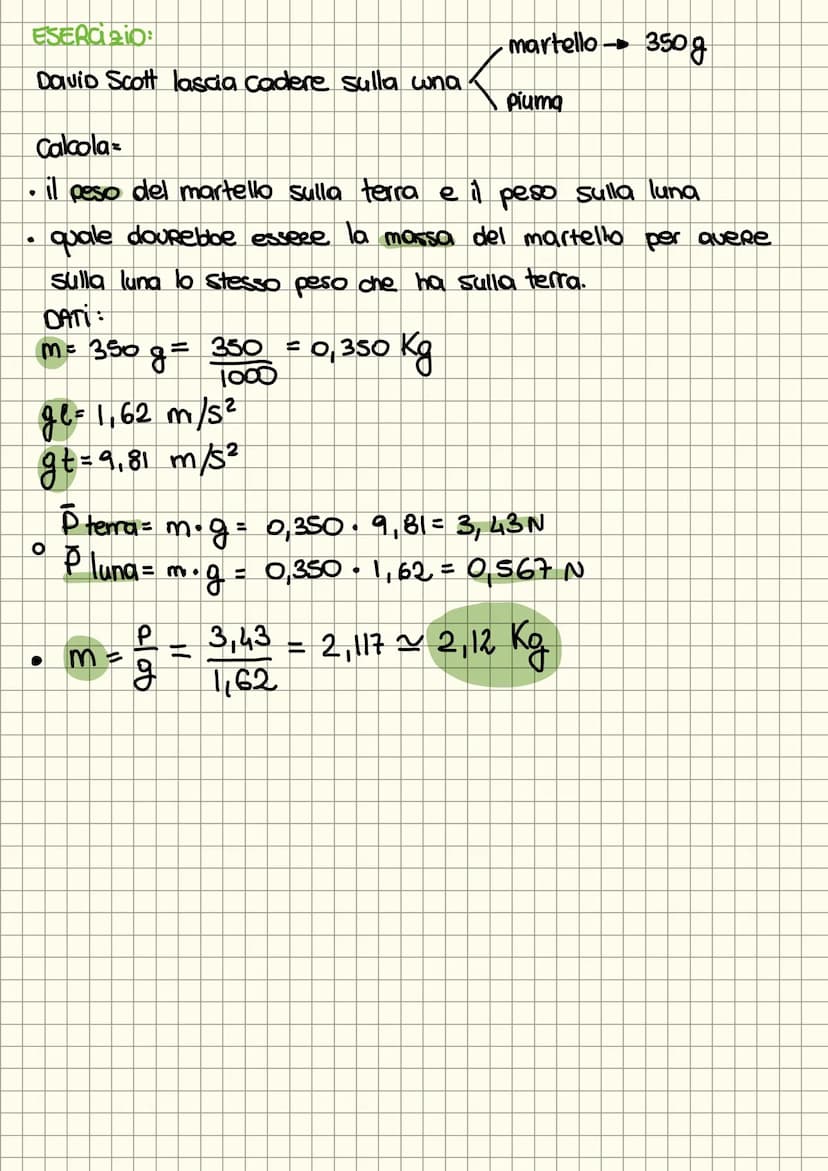 ESERCIZIO:
martello → 350g
David Scott lascia cadere sulla luna
piuma
Calcola=
• il peso del martello sulla terra e il peso sulla luna
• quale dovrebbe essere la massa del martello per avere
sulla luna lo stesso peso che ha sulla terra.
DATI:
m= 350 g = 350/1000 = 0,350 Kg
gl= 1,62 m/s²
gt= 9,81 m/s²
P̄ terra= m•g = 0,350 • 9,81 = 3,43N
° P̄ luna= m•g = 0,350 • 1,62 = 0,567 N
• m = P/g = 3,43/1,62 = 2,117 ≃ 2,12 Kg